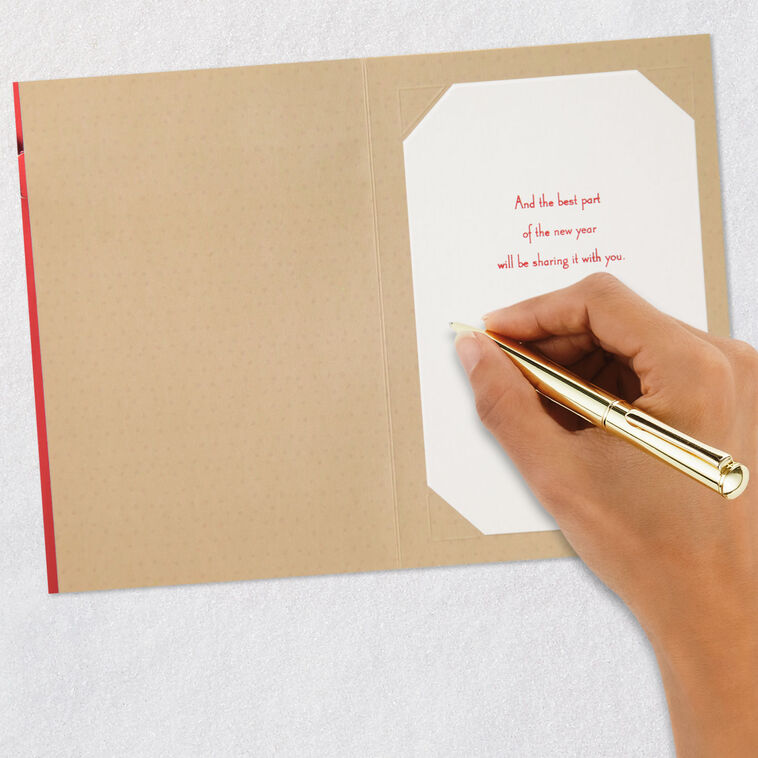 And the best part
of the new year
will be sharing it with you.